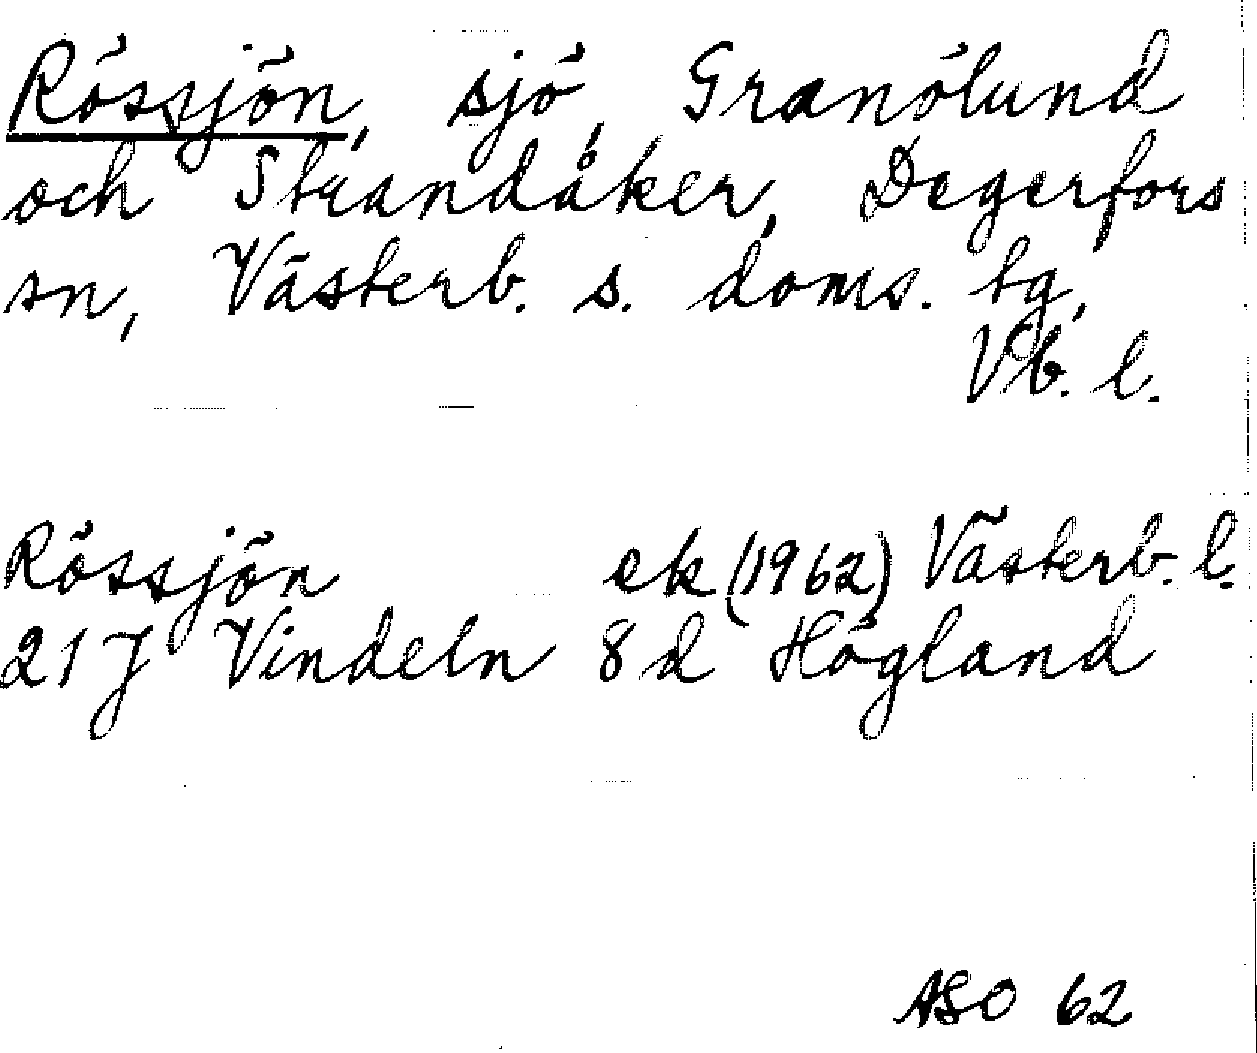 Rössjön, sjö, Granölund
och Strandåker, Degerfors
sn, Västerb. s. doms. tg,
Vb. l.
Rössjön ek (1962) Västerb. l.
21 J Vindeln 8 d Högland
ASO 62